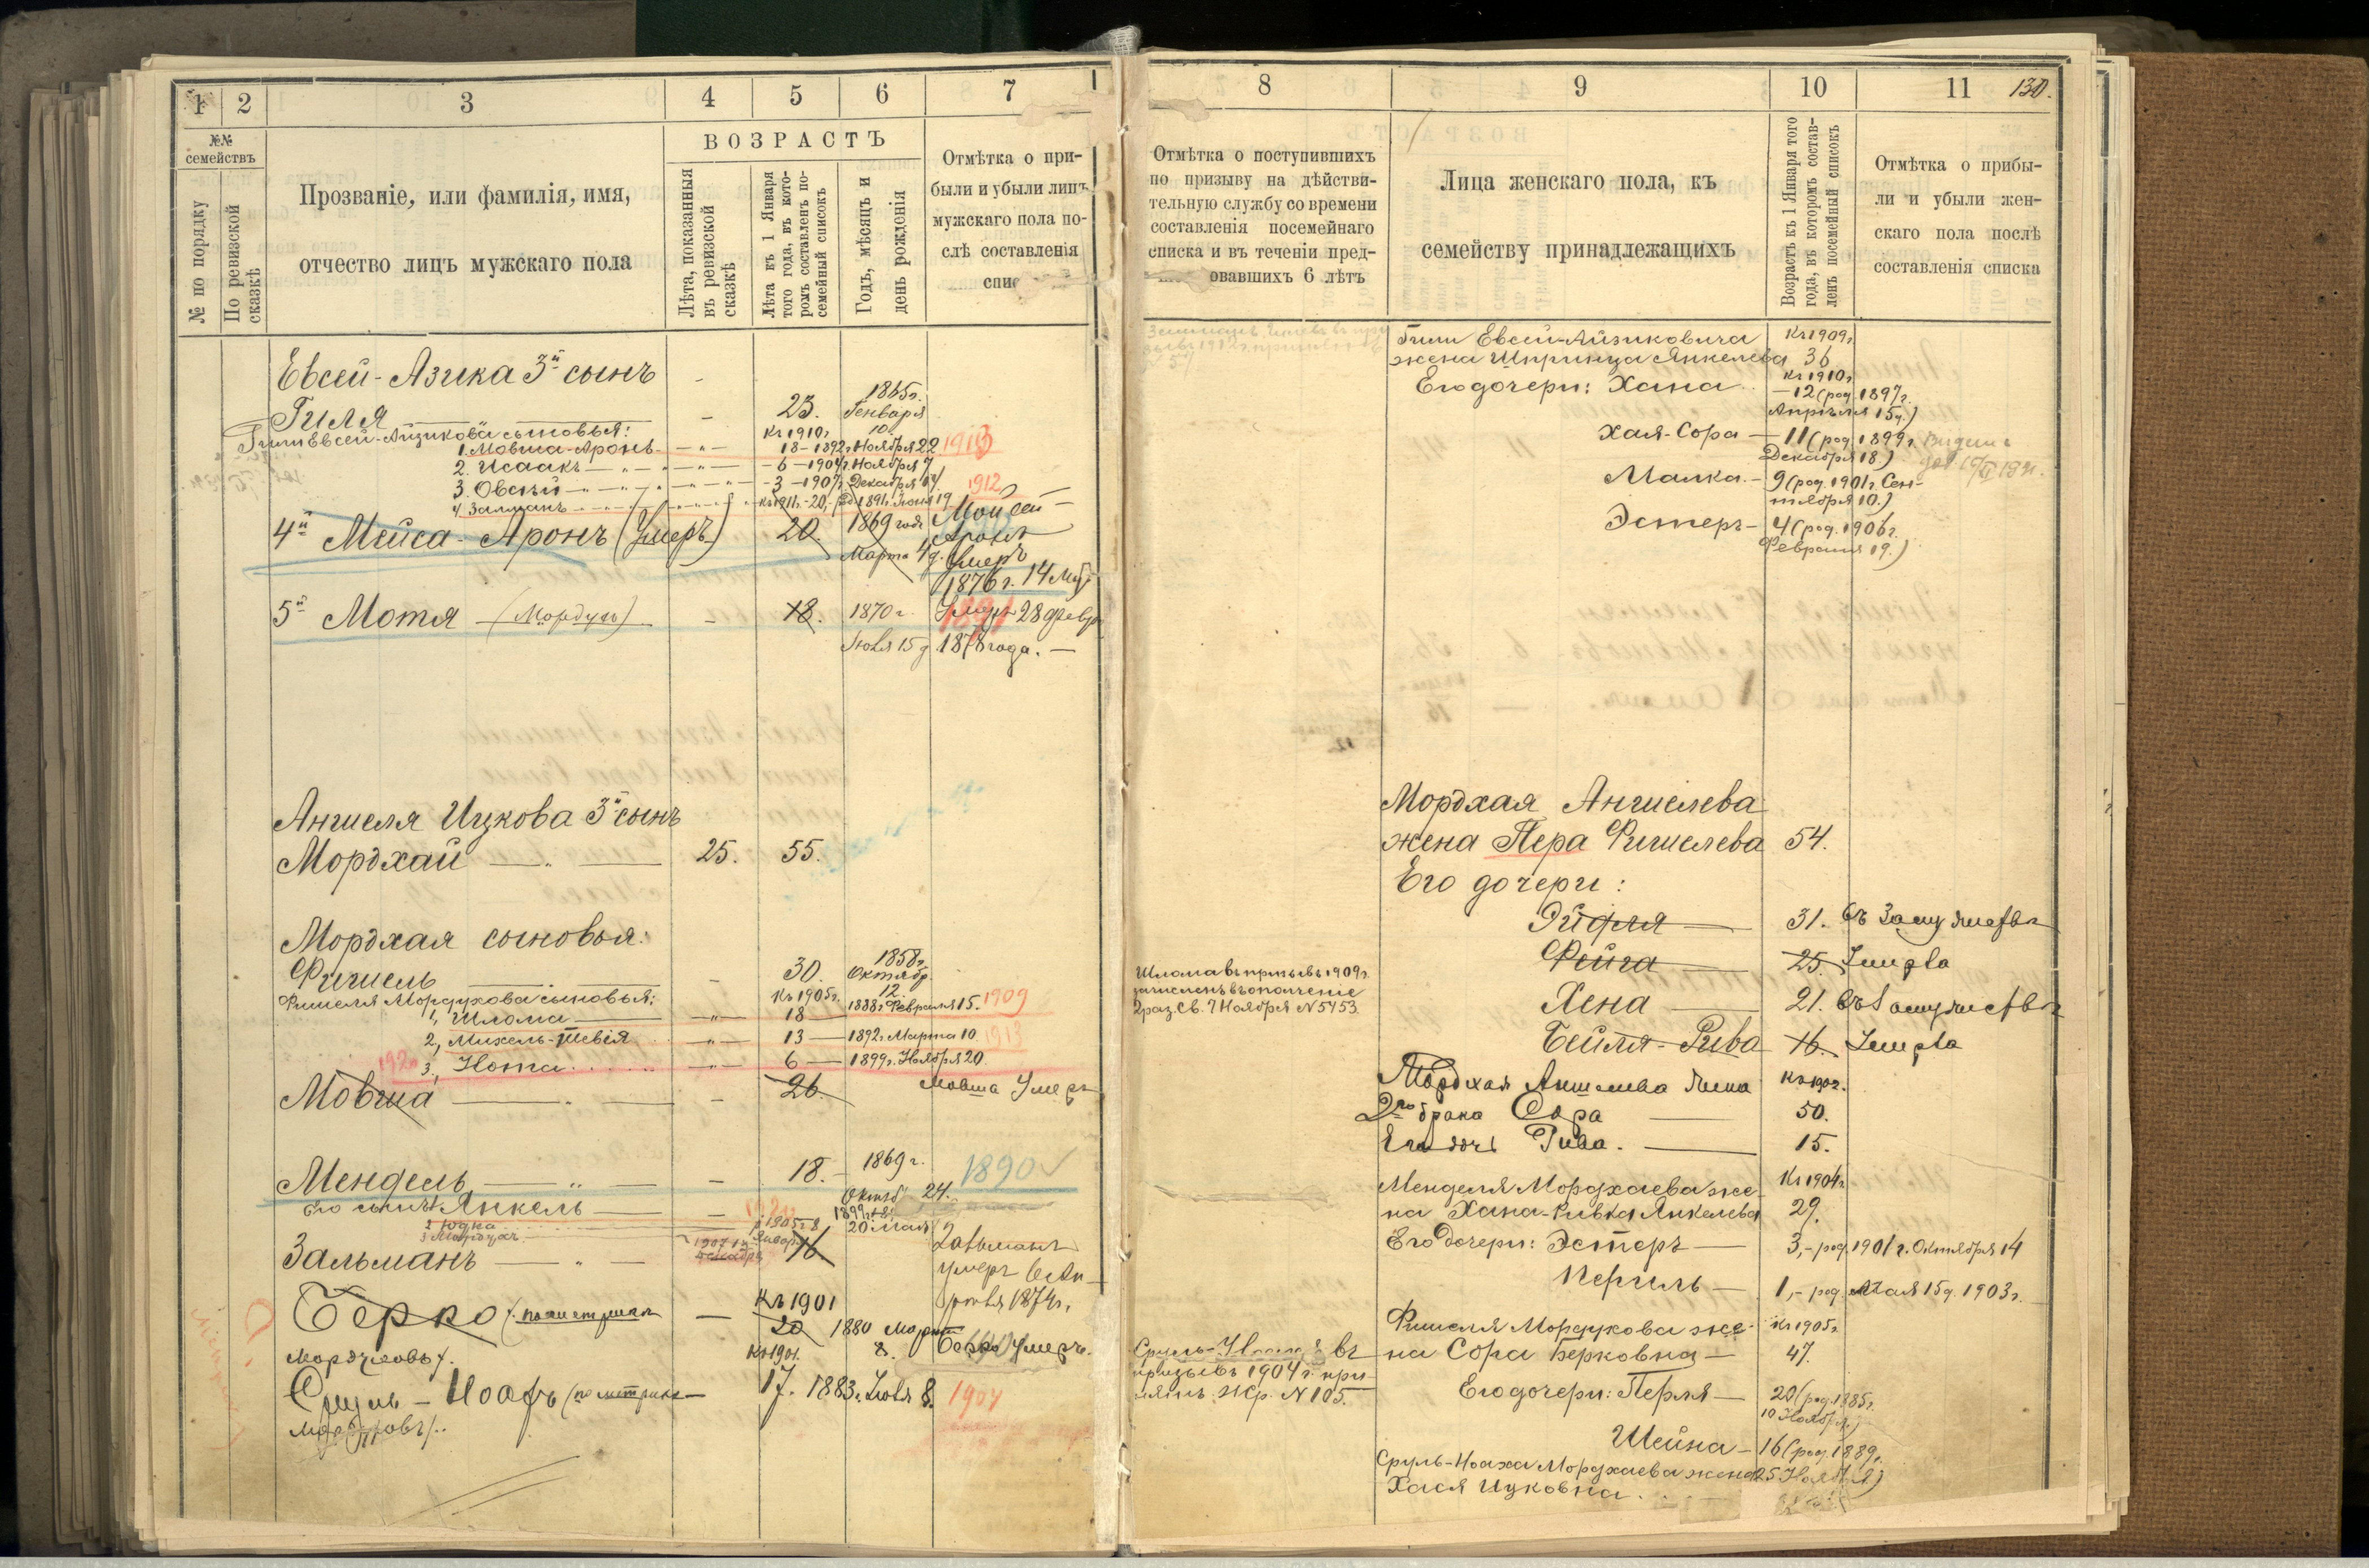 1 2 3 4 5 6 7
№№ семействъ
№ по порядку
По ревизской сказкѣ
Прозваніе, или фамилія, имя,
отчество лицъ мужскаго пола
ВОЗРАСТЪ
Лѣта, показанныя
въ ревизской
сказкѣ
Лѣта къ 1 Января
того года, въ кото-
ромъ составленъ по-
семейный списокъ
Годъ, мѣсяцъ и
день рожденія
Отмѣтка о при-
были и убыли лицъ
мужскаго пола по-
слѣ составленія
Евсей-Азика 3й сынъ
1865г.
Гиля 23. Генваря
10.
Гили Евсей-Айзикова сыновья: Къ 1910г
1. Мовша-Аронъ 18-1892г Ноября 22 1913
2. Исаакъ - 6 - 1904г Ноября 7
3. Овсѣй - 3 - 1907г Декабря
4. Залманъ къ 1911г.-20, род. 1891г. Іюня 19 1912
4й Мейса-Аронъ (Умеръ) 20. 1869 года
Марта 4д. Умеръ
1876г. 14
5й Мотя (Мордухъ) 18. 1870г. Умеръ 28 февр
1891
Іюля 15д. 1878 года.
Аншеля Ицкова 3й сынъ
Мордхай 25. 55.
Мордхая сыновья:
1858г.
Фишель 30. Октябр.
12.
Фишеля Мордухова сыновья: Къ 1905г.
1, Шлома 18 1888г. Февраля 15. 1909
2, Михель-Тевія 13 - 1892г. Марта 10 1913
3, Нота 6 - 1899г. Ноября 20
Мовша 26. Мовша Умеръ
Мендель 18. 1869г. 1890
24.
Его сынъ 1 Янкель 1899г.
2 Юдка 20 мая
3 Мордухъ
Зальманъ 16. Зальманъ
умеръ
1874г.
Берко (по метрикъ Къ 1901
20 1880 Марта
Мордуховъ). Къ 1901. 8. Берко Умеръ.
Сруль-Ноахъ (по метрикъ 17. 1883г. Іюля 8. 1904
8 9 10 11 130.
Отмѣтка о поступившихъ
по призыву на дѣйстви-
тельную службу со времени
составленія посемейнаго
списка и въ теченіи пред-
овавшихъ 6 лѣтъ
Лица женскаго пола, къ
семейству принадлежащихъ
Возрастъ къ 1 Января того
года, въ которомъ состав-
ленъ посемейный списокъ
Отмѣтка о прибы-
ли и убыли жен-
скаго пола послѣ
составленія списка
Гили Евсей-Айзиковича Къ 1909г
жена Шпринца Янкелева 36
Къ 1910г
Его дочери: Хана - 12 (род. 1897г.
Апрѣля 15д.)
Хая-Сора - 11 (род. 1899г
Декабря 18.)
Малка - 9 (род. 1901г. Сен-
тября 10.)
Эстеръ - 4 (род. 1906г.
Февраля 19.)
Мордхая Аншелева
жена Пера Фишелева 54.
Его дочери:
Эйдля 31. Въ Замужествѣ
Фейга 25. Умерла
Хена 21. Въ Замужествѣ
Бейля-Рива 16. Умерла
Шлома въ призывъ 1909г.
зачисленъ въ ополченіе
2 раз. Св. 7 Ноября N 5453
Мордхая Аншелева жена Къ 1902.
2го брака Сора 50.
Его дочь Рива. 15.
Менделя Мордхаева же- Къ 1904г
на Хана-Ривка Янкелева 29.
Его дочери: Эстеръ 3, - род. 1901г. Октября 14
Периль 1, - род. Мая 15д. 1903г.
Фишеля Мордухова же- Къ 1905г
на Сора Берковна 47.
Сруль- въ
призывъ 1904г. при-
нятъ. Жр. N 105.
Его дочери: Перля - 20 (род. 1885г.
10 Ноября)
Шейна - 16 (род. 1889.
25 Ноября)
Сруль-Ноаха Мордхаева жена
Хася Ицковна.